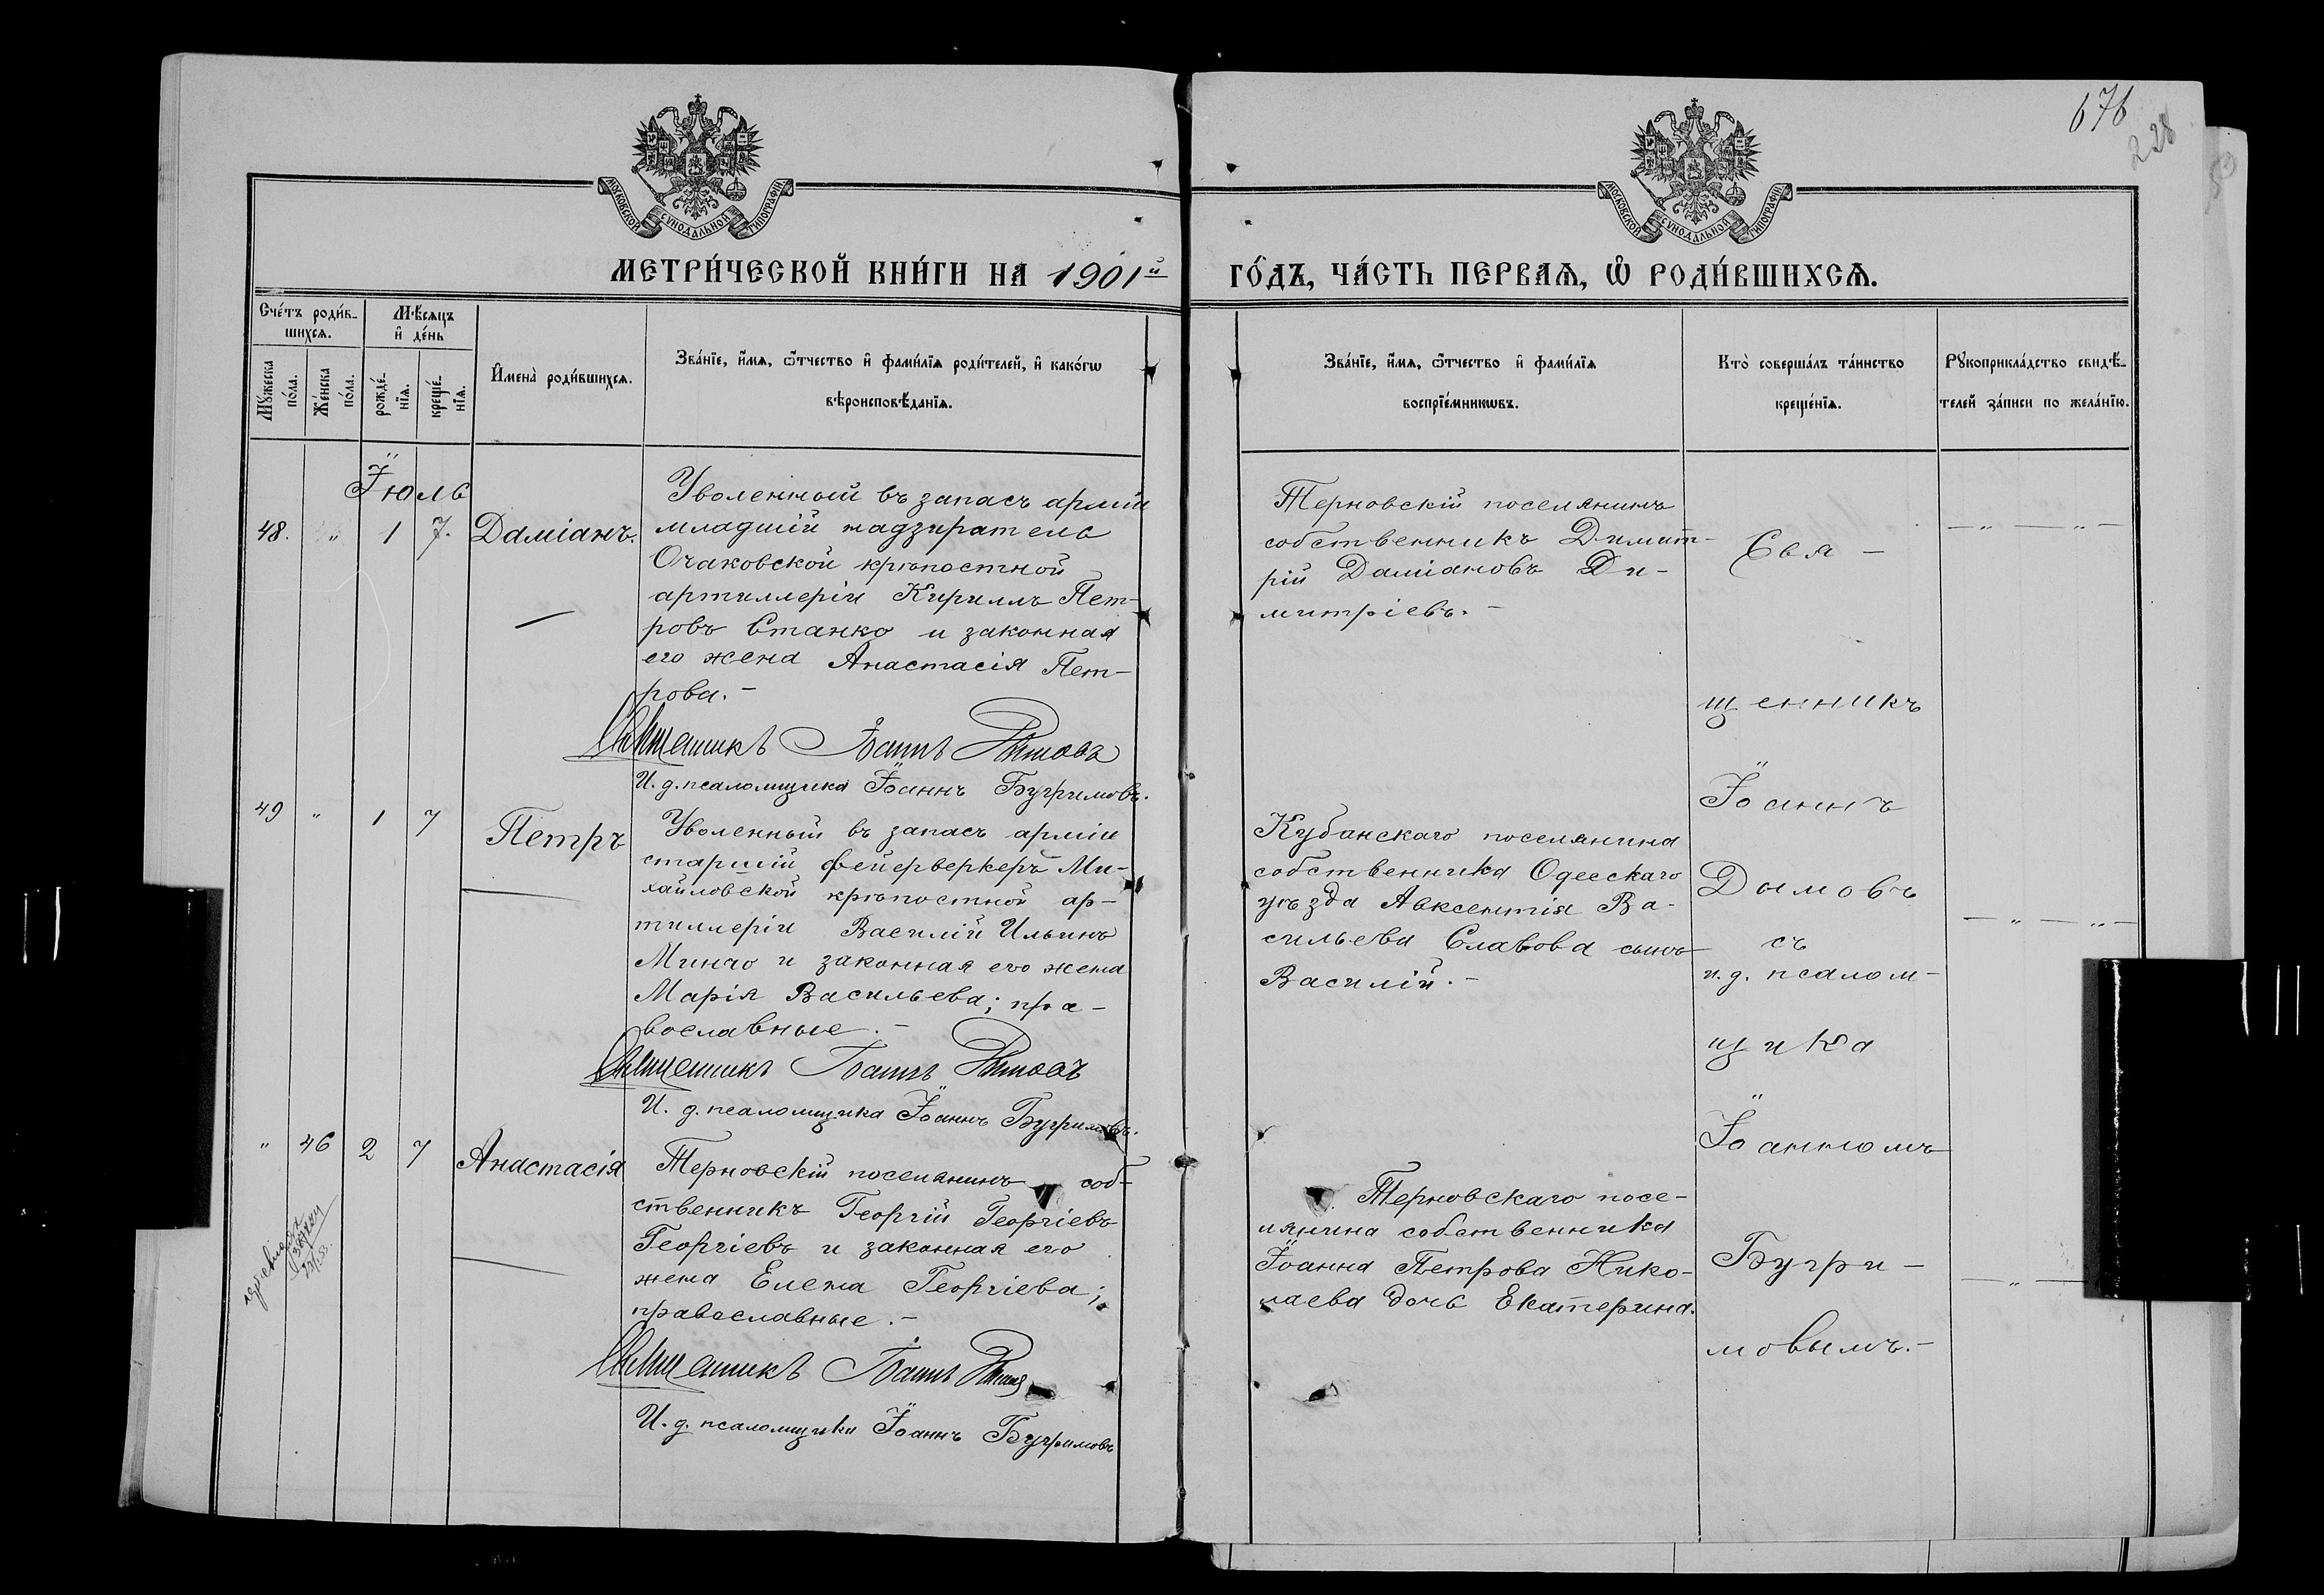 676
228
МОСКОВСКОЙ СУНОДАЛЬНОЙ ТИПОГРАФІИ
МОСКОВСКОЙ СУНОДАЛЬНОЙ ТИПОГРАФІИ
МЕТРИ́ЧЕСКОЙ КНИ́ГИ НА 1901й
ГО́ДЪ, ЧА́СТЬ ПЕРВАѦ, Ѡ҆ РОДИ́ВШИХСѦ.
Сче́тъ роди́в-
шихсѧ.
Мꙋ́жеска
по́ла.
Же́нска
по́ла.
Мѣ́сѧцъ
и҆ де́нь
рожде́-
нїѧ.
креще́-
нїѧ.
И҆мена̀ роди́вшихсѧ.
Зва́нїе, и҆́мѧ, ѻ҆́тчество и҆ фами́лїѧ роди́телей, и҆ како́гѡ
вѣроисповѣ́данїѧ.
Зва́нїе, и҆́мѧ, ѻ҆́тчество и҆ фами́лїѧ
воспрїе́мникѡвъ.
Кто̀ соверша́лъ та́инство
креще́нїѧ.
Рꙋкоприкла́дство свидѣ́-
телей за́писи по жела́нїю.
Іюль
48. " 1 7. Даміанъ.
Уволенный въ запасъ арміи
младшій надзиратель
Очаковской крѣпостной
артиллеріи Кириллъ Пет-
ровъ Станко и законная
его жена Анастасія Пет-
рова.-
Священникъ Іоаннъ Дымовъ
И. д. псаломщика Іоаннъ Бугримовъ.
Терновскій поселянинъ
собственникъ Димит-
рій Даміановъ Ди-
митріевъ.-
49 " 1 7 Петръ
Уволенный въ запасъ арміи
старшій фейерверкеръ Ми-
хайловской крѣпостной ар-
тиллеріи Василій Ильинъ
Минчо и законная его жена
Марія Васильева; пра-
вославные.-
Священникъ Іоаннъ Дымовъ
И. д. псаломщика Іоаннъ Бугримовъ.
Кубанскаго поселянина
собственника Одесскаго
уѣзда Авксентія Ва-
сильева Славова сынъ
Василій.-
" 46 2 7 Анастасія
Терновскій поселянинъ соб-
ственникъ Георгій Георгіевъ
Георгіевъ и законная его
жена Елена Георгіева;
православные.-
Священникъ Іоаннъ Дымовъ
И. д. псаломщика Іоаннъ Бугримовъ
Терновскаго посе-
лянина собственника
Іоанна Петрова Нико-
лаева дочь Екатерина.
Свя-
щенникъ
Іоаннъ
Дымовъ
съ
и. д. псалом-
щика
Іоанномъ
Бугри-
мовымъ.-